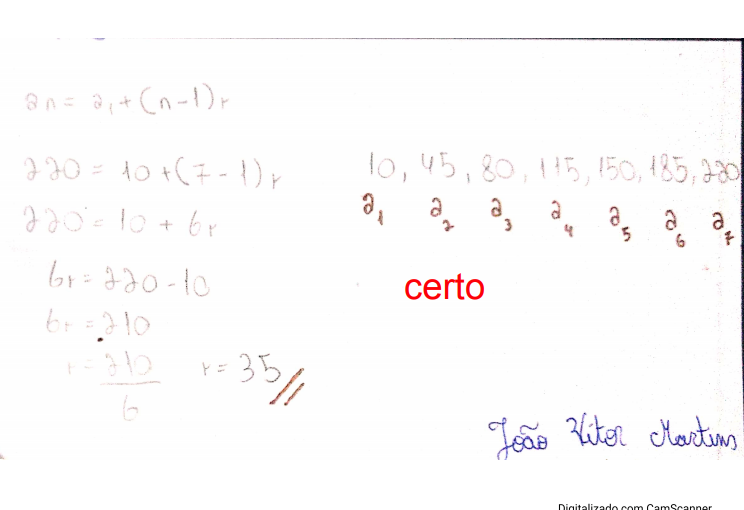 an = a₁ + (n-1)r
220 = 10 + (7-1)r
220 = 10 + 6r
6r = 220 - 10
6r = 210
r = 210
6
r = 35 //
10, 45, 80, 115, 150, 185, 220
a₁ a₂ a₃ a₄ a₅ a₆ a₇
certo
João Vitor Martins
Digitalizado com CamScanner